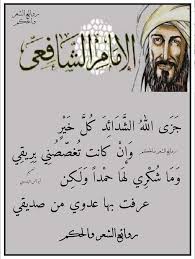 روائع الشعر
والحكم
الإمام الشافعي
جَزَى اللهُ الشَّدَائِدَ كُلَّ خَيْرٍ
وَإِنْ كَانَت تُغَصِّصُنِي بِرِيقِي
وَمَا شُكْرِي لَهَا حَمْداً وَلَكِن
عرفت بها عدوي من صديقي
روائع الشعر والحكم